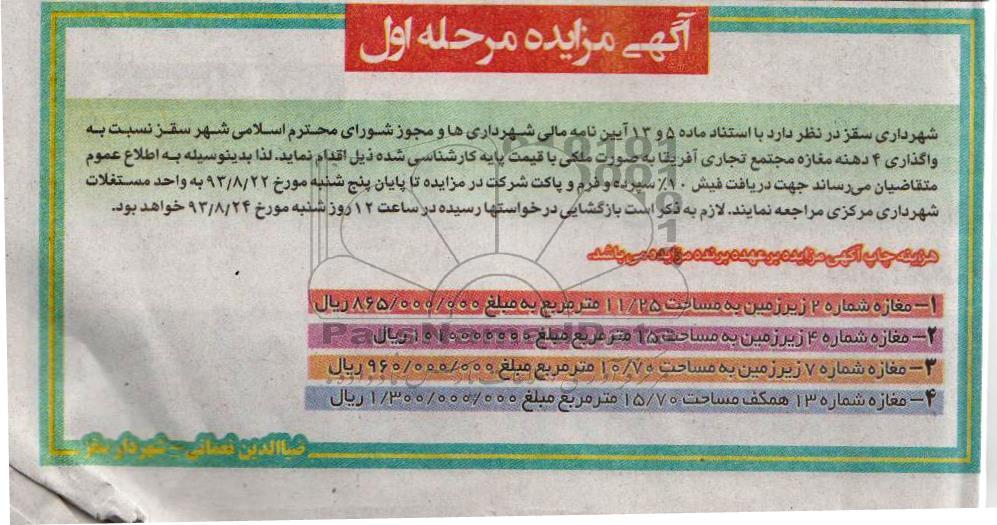 آگهی مزایده مرحله اول
شهرداری سقز در نظر دارد با استناد ماده ۵ و ۱۳ آیین نامه مالی شهرداری ها و مجوز شورای محترم اسلامی شهر سقز نسبت به
واگذاری ۴ دهنه مغازه مجتمع تجاری آفریقا به صورت ملکی با قیمت پایه کارشناسی شده ذیل اقدام نماید. لذا بدینوسیله به اطلاع عموم
متقاضیان می‌رساند جهت دریافت فیش ۱۰٪ سپرده و فرم و پاکت شرکت در مزایده تا پایان پنج شنبه مورخ ۹۳/۸/۲۲ به واحد مستغلات
شهرداری مرکزی مراجعه نمایند. لازم به ذکر است بازگشایی درخواستها رسیده در ساعت ۱۲ روز شنبه مورخ ۹۳/۸/۲۴ خواهد بود.
هزینه چاپ آگهی مزایده بر عهده برنده مزایده می باشد.
۱- مغازه شماره ۲ زیرزمین به مساحت ۱۱/۲۵ مترمربع به مبلغ ۸۶۵/۰۰۰/۰۰۰ ریال
۲- مغازه شماره ۴ زیرزمین به مساحت ۱۵ مترمربع مبلغ ریال
۳- مغازه شماره ۷ زیرزمین به مساحت ۱۰/۷۰ مترمربع مبلغ ۹۶۰/۰۰۰/۰۰۰ ریال
۴- مغازه شماره ۱۳ همکف مساحت ۱۵/۷۰ مترمربع مبلغ ۱/۳۰۰/۰۰۰/۰۰۰ ریال
ضیاالدین نعمانی - شهردار سقز